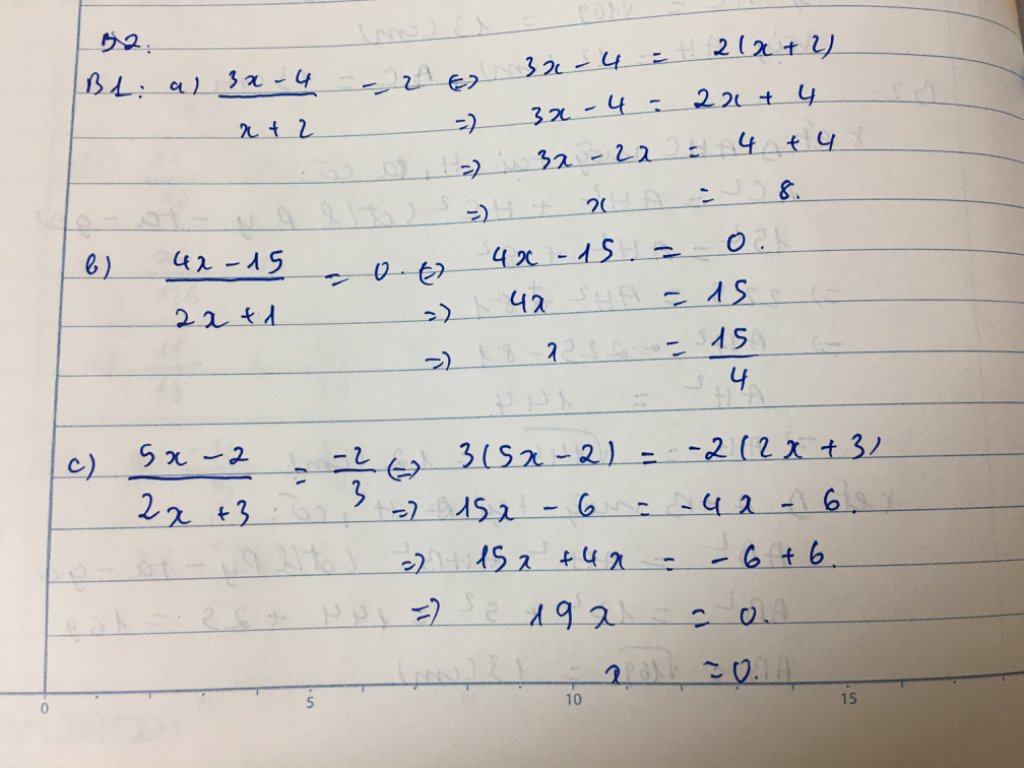 Đ2.
B1: a) (3x - 4)/(x + 2) = 2 <=> 3x - 4 = 2(x + 2)
=> 3x - 4 = 2x + 4
=> 3x - 2x = 4 + 4
=> x = 8.
b) (4x - 15)/(2x + 1) = 0. <=> 4x - 15. = 0.
=> 4x = 15
=> x = 15/4
c) (5x - 2)/(2x + 3) = -2/3 <=> 3(5x - 2) = -2(2x + 3)
=> 15x - 6 = -4x - 6.
=> 15x + 4x = -6 + 6.
=> 19x = 0.
x = 0.
0 5 10 15